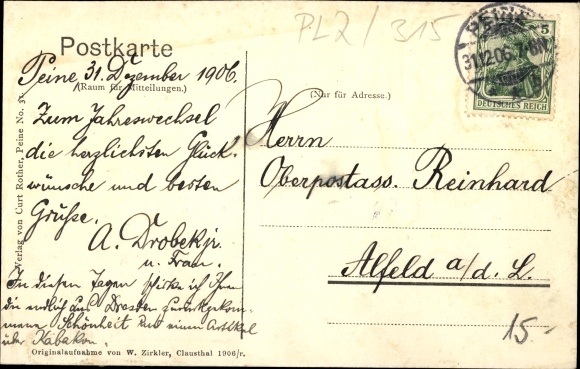 PL2/315
Postkarte
Peine 31. Dezember 1906.
(Raum für Mitteilungen.)
(Nur für Adresse.)
PEINE
31.12.06. 7-8N
5
DEUTSCHES REICH
Zum Jahreswechsel
die herzlichsten Glück-
wünsche und besten
Grüße.
A. Drobek jr.
u. Frau.
In diesen Tagen schicke ich Ihnen
die endlich aus Dresden zurückgekom-
mene Schönheit und einen Artikel
über Kabakon.
Herrn
Oberpostass. Reinhard
Alfeld a/d. L.
15-
Verlag von Curt Rother, Peine No.
Originalaufnahme von W. Zirkler, Clausthal 1906/r.